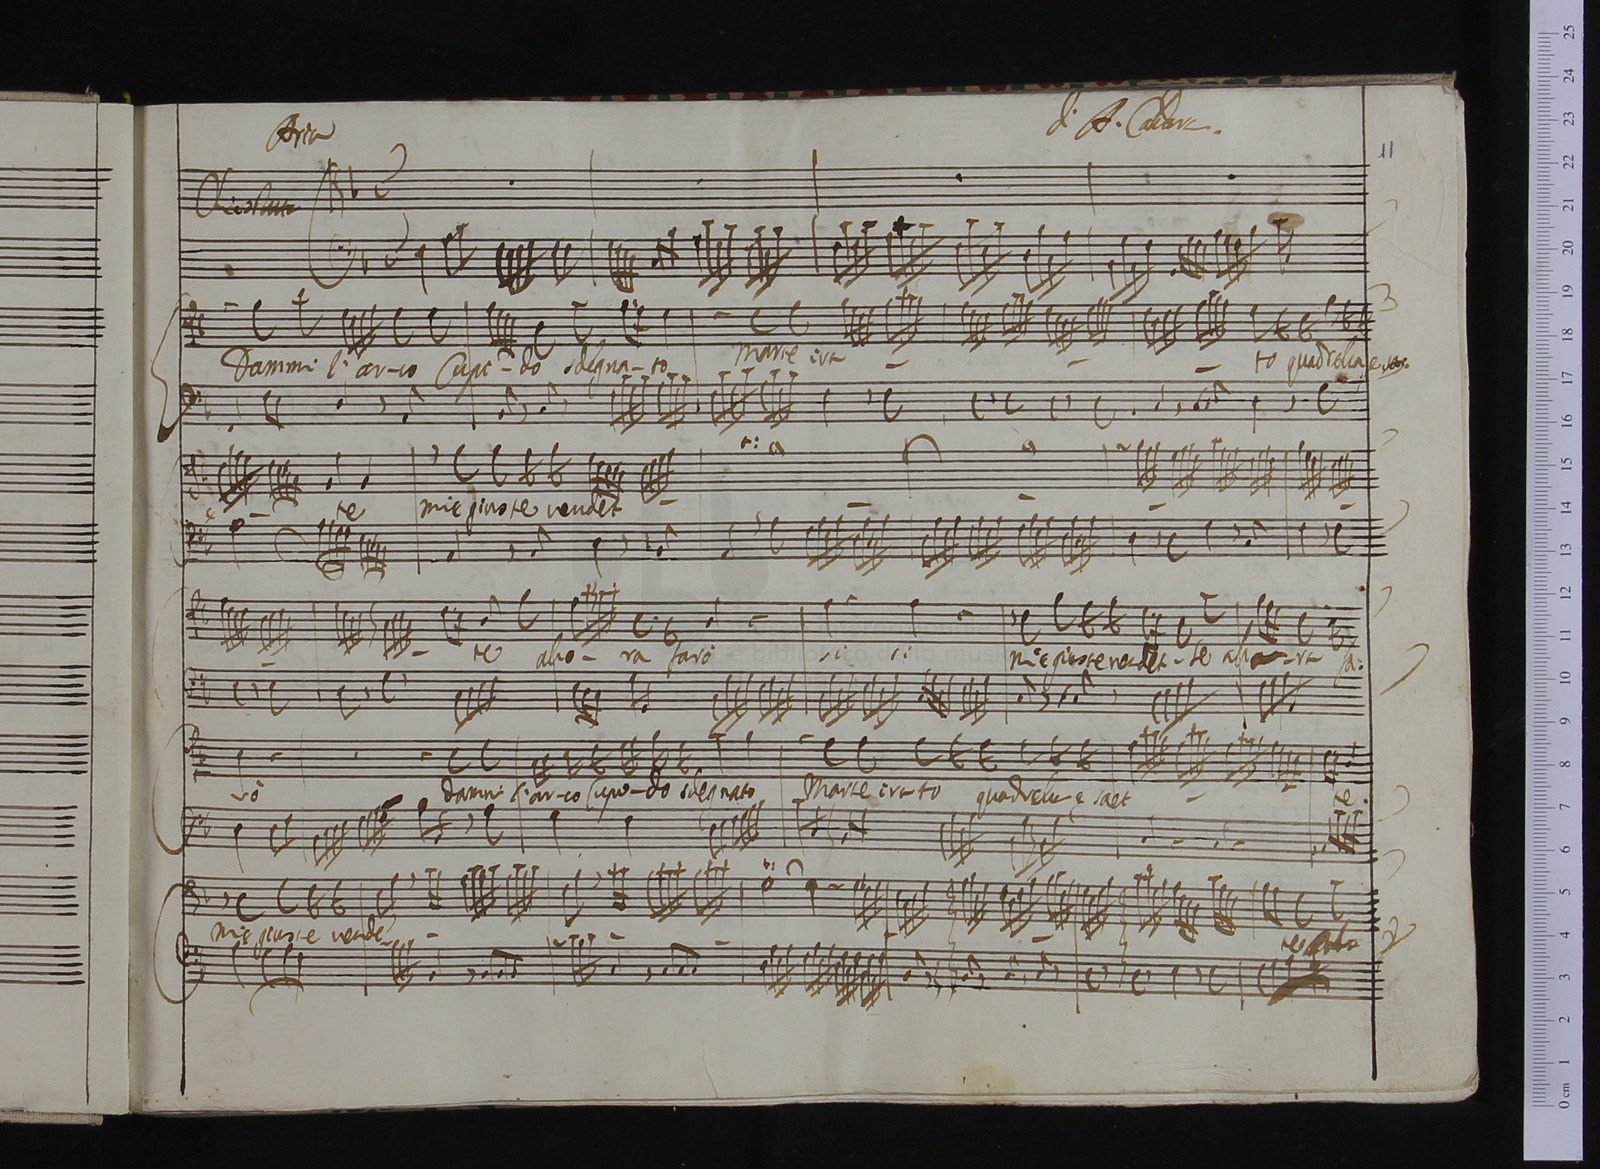 Aria
di A. Caldara.
11
Dammi l'ar-co Cupi-do sdegna-to Marte ira - - - to quadrella e
- te mie giuste vendet - - - -
- - te alho-ra farò mie giuste vendet-te alho-ra fa:
rò dammi l'ar-co Cupi-do sdegnato Marte irato quadrella e saet - te
mie giuste vendet - - - - te
0 cm 1 2 3 4 5 6 7 8 9 10 11 12 13 14 15 16 17 18 19 20 21 22 23 24 25